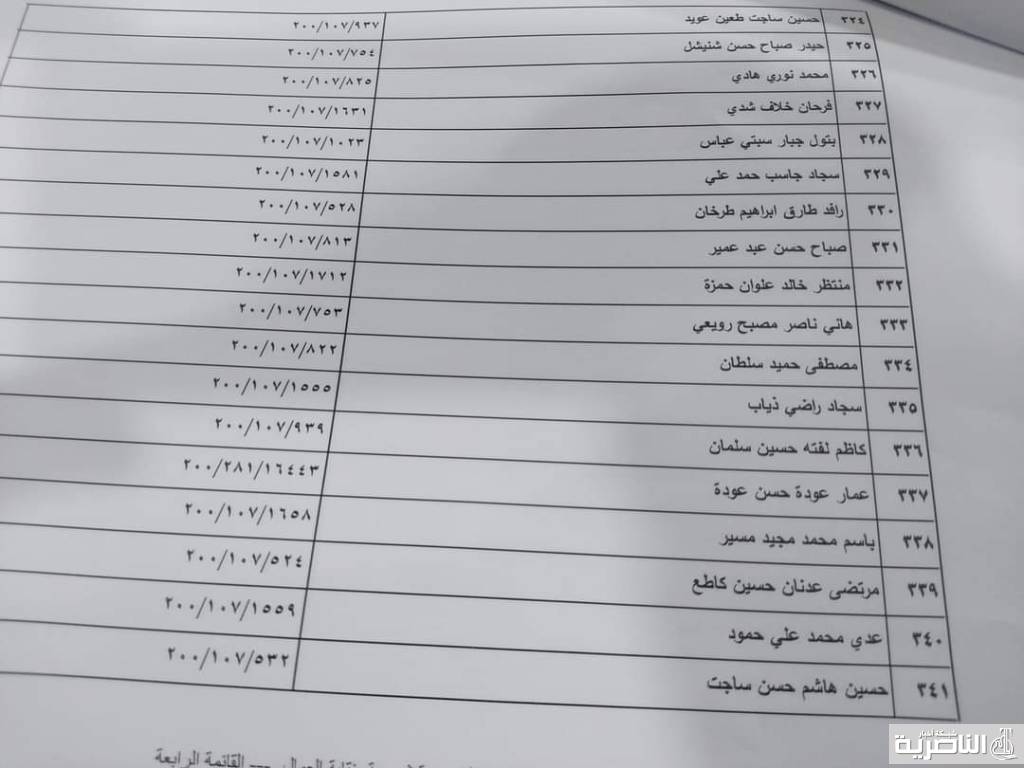 ٣٢٤ حسين ساجت طعين عويد ٢٠٠/١٠٧/٩٣٧
٣٢٥ حيدر صباح حسن شنيشل ٢٠٠/١٠٧/٧٥٤
٣٢٦ محمد نوري هادي ٢٠٠/١٠٧/٨٢٥
٣٢٧ فرحان خلاف شدي ٢٠٠/١٠٧/١٦٣١
٣٢٨ بتول جبار سبتي عباس ٢٠٠/١٠٧/١٠٢٣
٣٢٩ سجاد جاسب حمد علي ٢٠٠/١٠٧/١٥٨١
٣٣٠ رافد طارق ابراهيم طرخان ٢٠٠/١٠٧/٥٢٨
٣٣١ صباح حسن عبد عمير ٢٠٠/١٠٧/٨١٣
٣٣٢ منتظر خالد علوان حمزة ٢٠٠/١٠٧/١٧١٢
٣٣٣ هاني ناصر مصبح رويعي ٢٠٠/١٠٧/٧٥٣
٣٣٤ مصطفى حميد سلطان ٢٠٠/١٠٧/٨٢٢
٣٣٥ سجاد راضي ذياب ٢٠٠/١٠٧/١٥٥٥
٣٣٦ كاظم لفته حسين سلمان ٢٠٠/١٠٧/٩٣٩
٣٣٧ عمار عودة حسن عودة ٢٠٠/٢٨١/١٦٤٤٣
٣٣٨ باسم محمد مجيد مسير ٢٠٠/١٠٧/١٦٥٨
٣٣٩ مرتضى عدنان حسين كاطع ٢٠٠/١٠٧/٥٢٤
٣٤٠ عدي محمد علي حمود ٢٠٠/١٠٧/١٥٥٩
٣٤١ حسين هاشم حسن ساجت ٢٠٠/١٠٧/٥٣٢
--- القائمة الرابعة
شبكة أخبار
الناصرية